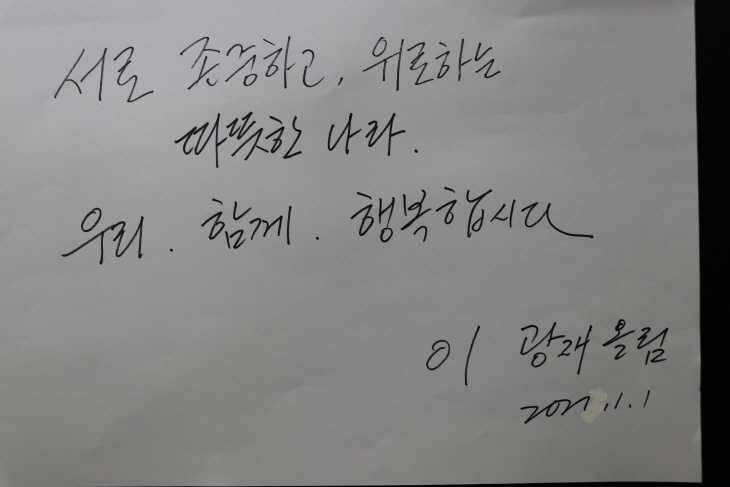 서로 존경하고, 위로하는
따뜻한 나라.
우리. 함께. 행복합시다
이 광재 올림
2021.1.1